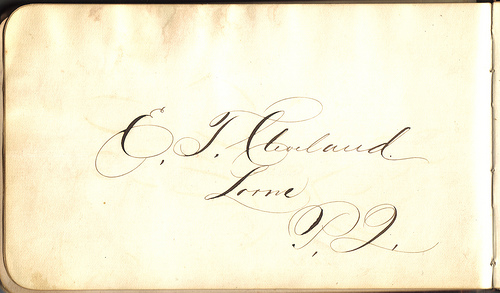 E. T. Cleland.
Lorne
P. Q.